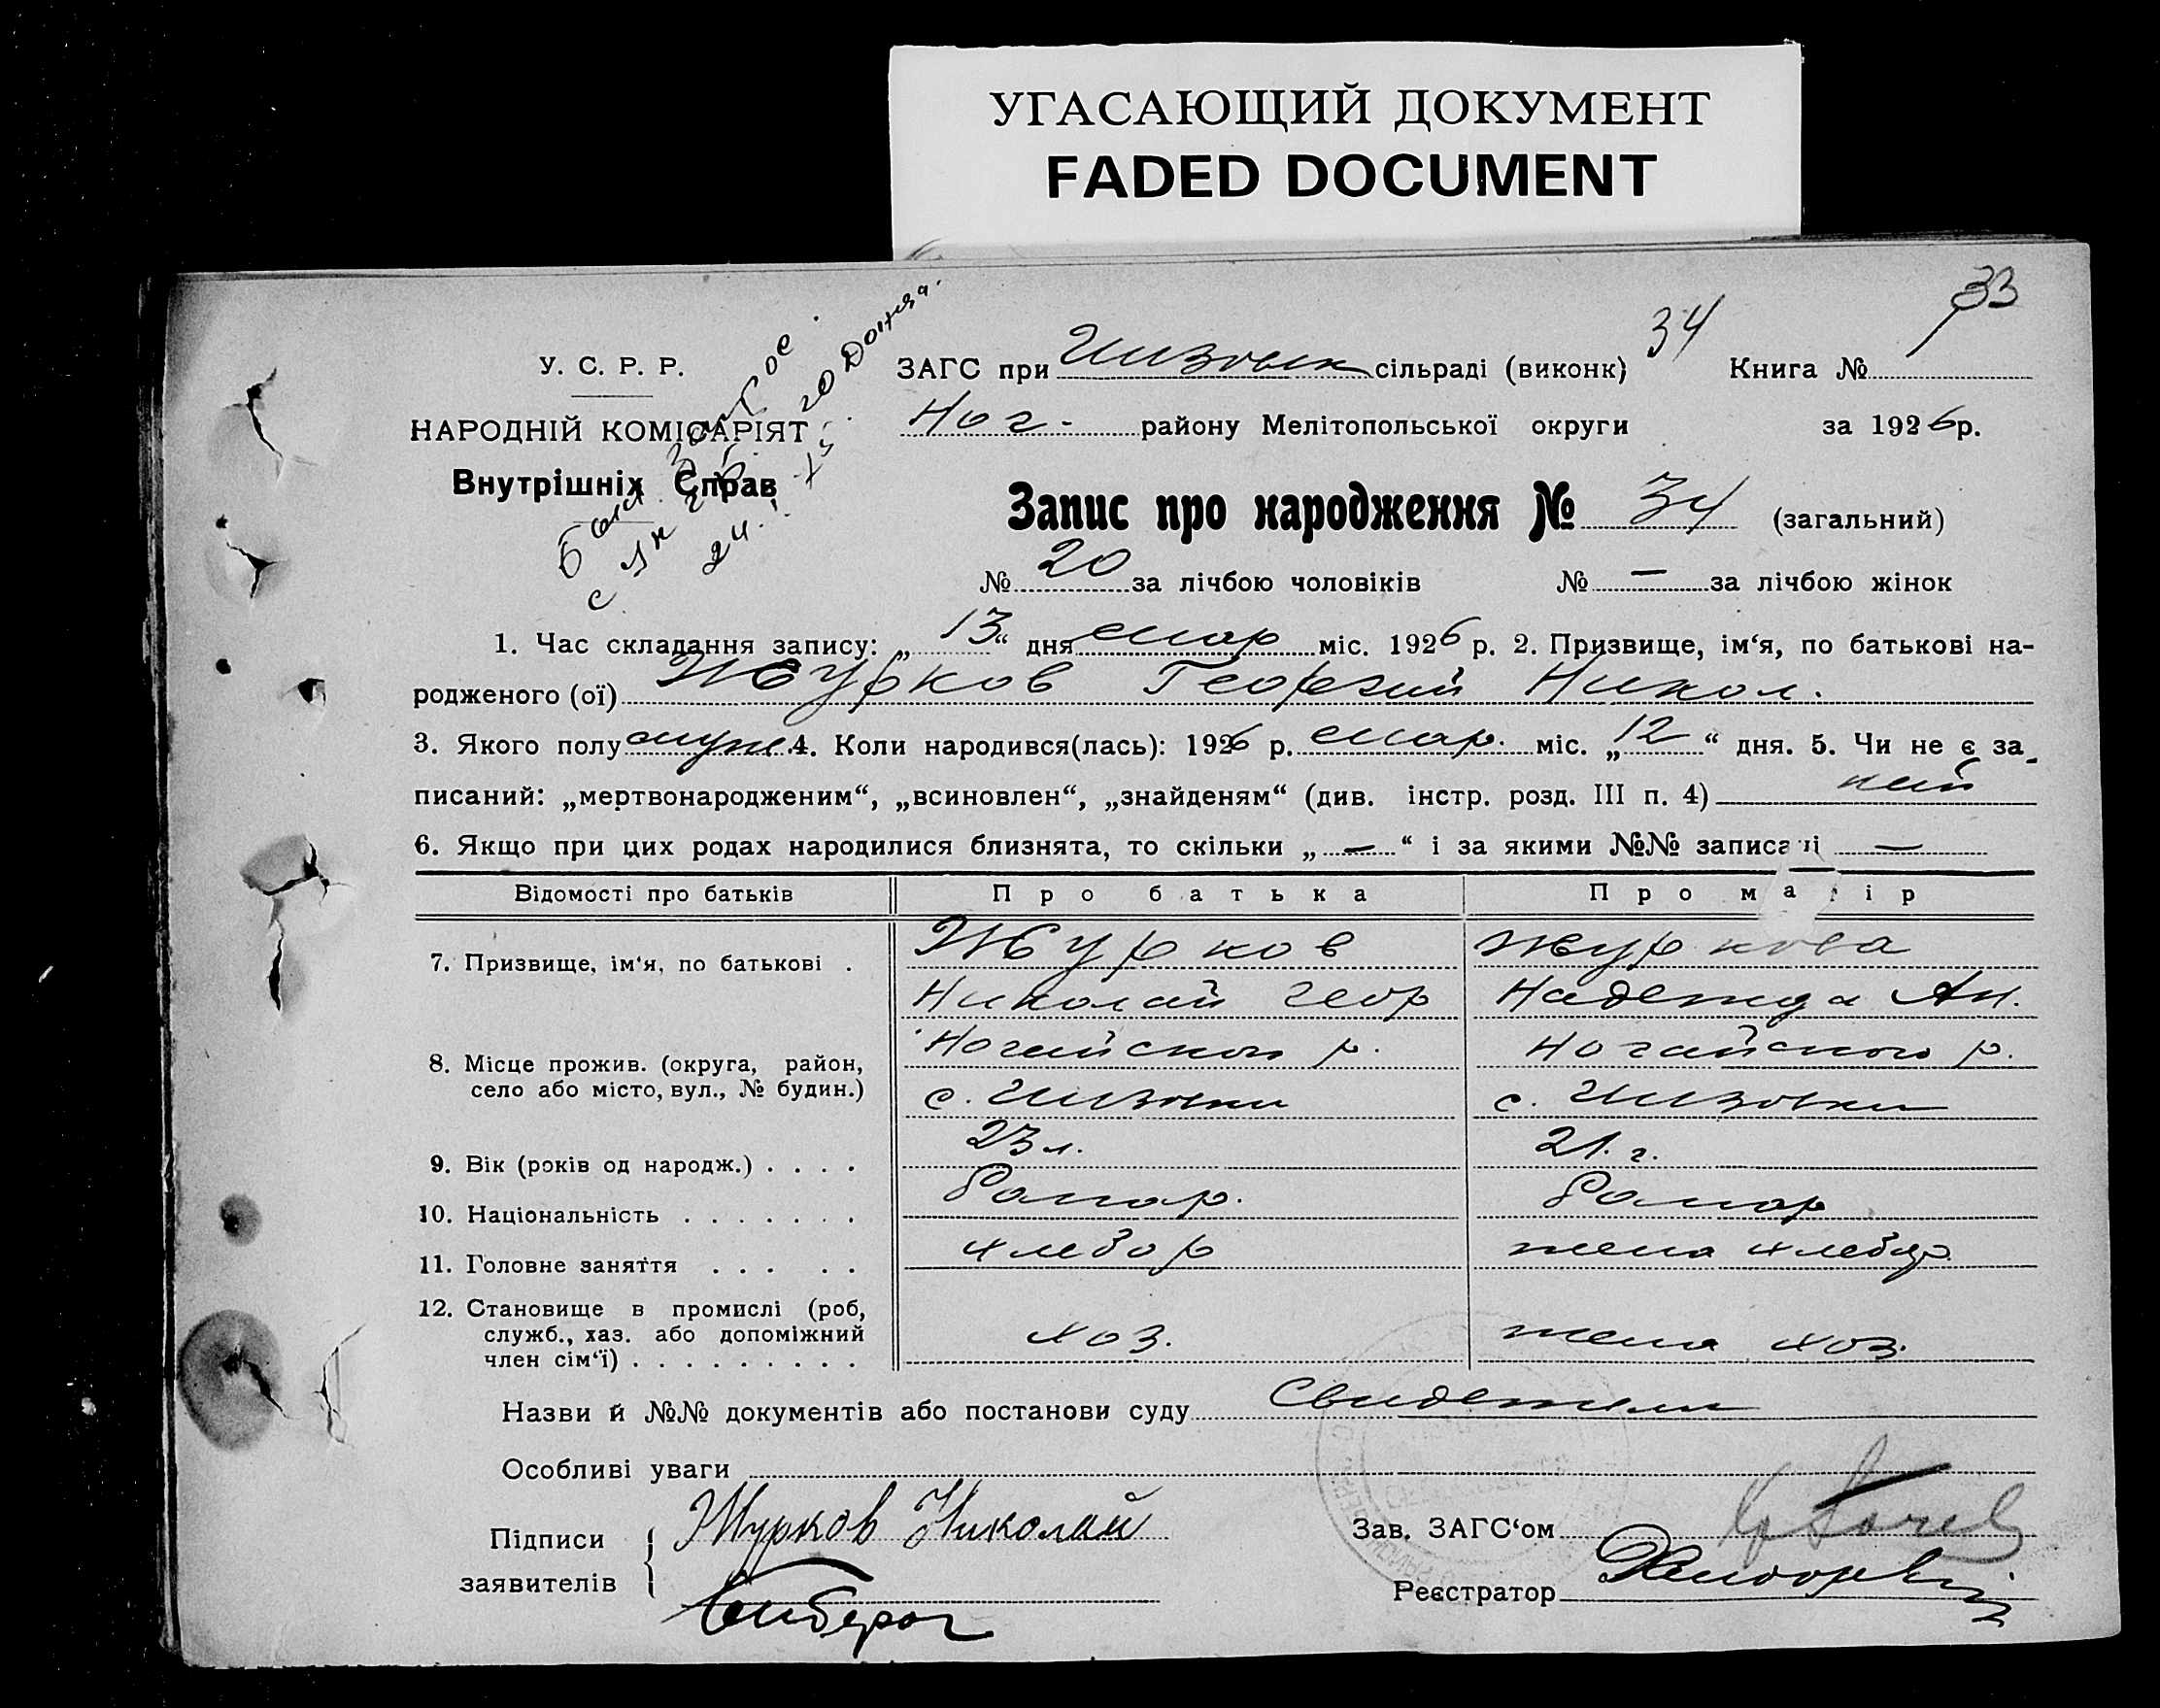 УГАСАЮЩИЙ ДОКУМЕНТ
FADED DOCUMENT
33
34
У. С. Р. Р.
НАРОДНІЙ КОМІСАРІЯТ
Внутрішніх Справ
ЗАГС при сільраді (виконк) Книга №
Ног- району Мелітопольської округи за 1926 р.
Запис про народження № 34 (загальний)
№ 20 за лічбою чоловіків № — за лічбою жінок
1. Час складання запису: „13“ дня мар міс. 1926 р. 2. Призвище, ім‘я, по батькові на-
родженого (ої) Журков Георгий Никол.
3. Якого полу муж. 4. Коли народився(лась): 1926 р. мар. міс. „12“ дня. 5. Чи не є за-
писаний: „мертвонародженим“, „всиновлен“, „знайденям“ (див. інстр. розд. III п. 4)
6. Якщо при цих родах народилися близнята, то скільки „—“ і за якими №№ записані —
Відомості про батьків Про батька Про матір
7. Призвище, ім‘я, по батькові . Журков Журкова
Николай Геор Надежда Ан.
Ногайского р. Ногайского р.
8. Місце прожив. (округа, район,
село або місто, вул., № будин.)
9. Вік (років од народж.) . . . . 23 л. 21. г.
10. Національність . . . . . . .
11. Головне заняття . . . . . хлебор жена хлебор.
12. Становище в промислі (роб,
служб., хаз. або допоміжний
член сім‘ї) . . . . . . . . . хоз. жена хоз.
Назви й №№ документів або постанови суду Свидетели
Особливі уваги
Підписи
заявителів
Журков Николай
Зав. ЗАГС‘ом
Реєстратор